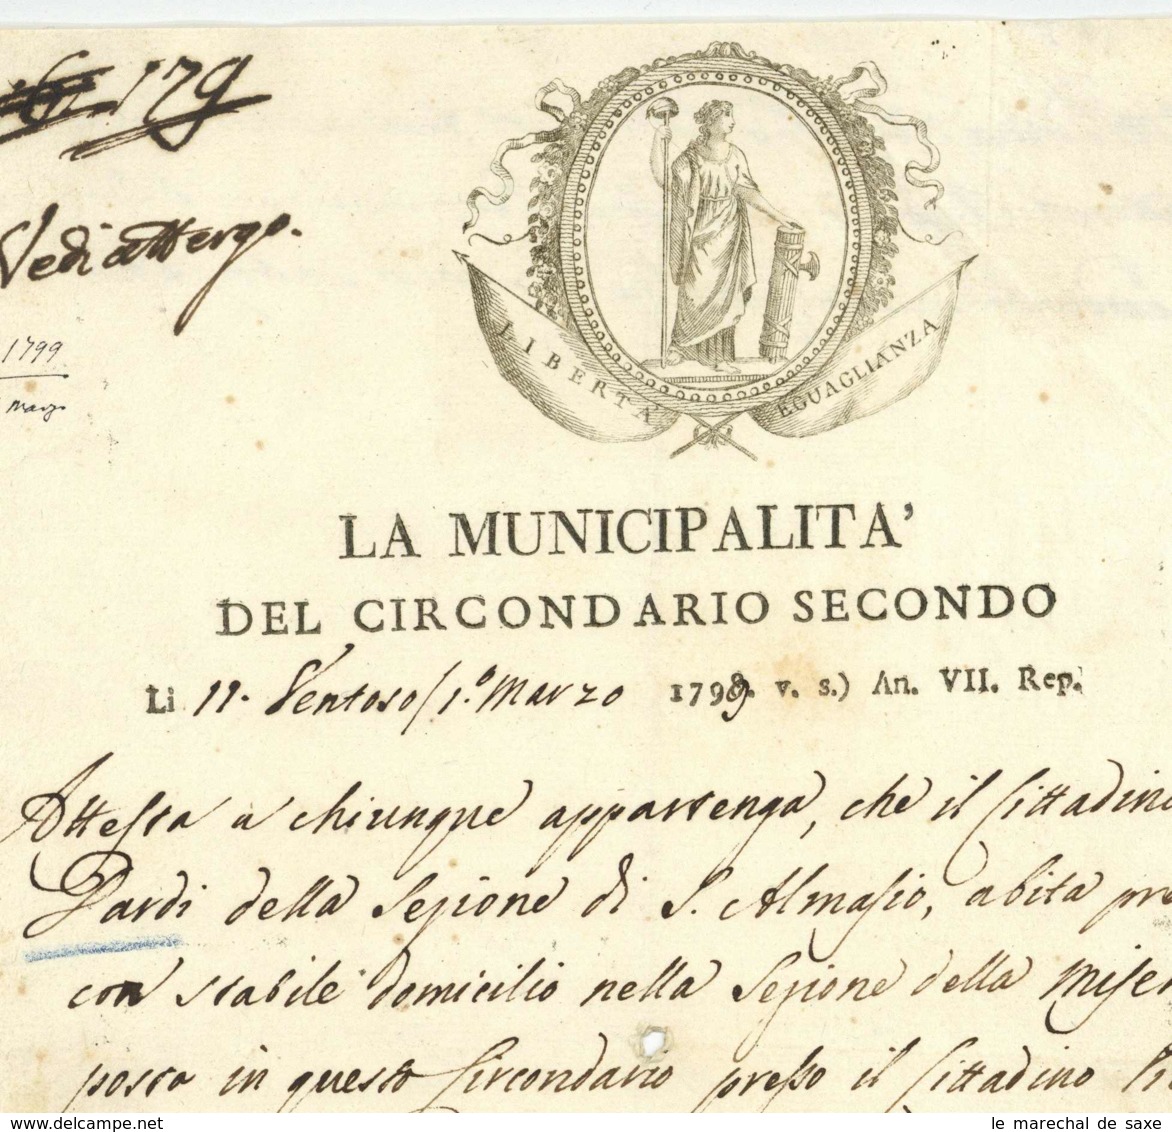 179
Vedi attergo.
1799
Marzo
LIBERTA'
EGUAGLIANZA
LA MUNICIPALITA'
DEL CIRCONDARIO SECONDO
Li 11. Ventoso (1.º Marzo 1799. v. s.) An. VII. Rep.
Attesta a chiunque appartenga, che il Cittadino
Pardi della Sezione di S. Almasio, abita pre
con stabile domicilio nella Sezione della Miser
posta in questo Circondario presso il Cittadino
le marechal de saxe